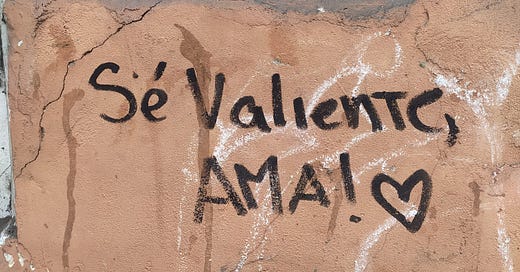 Sé Valiente,
AMA!